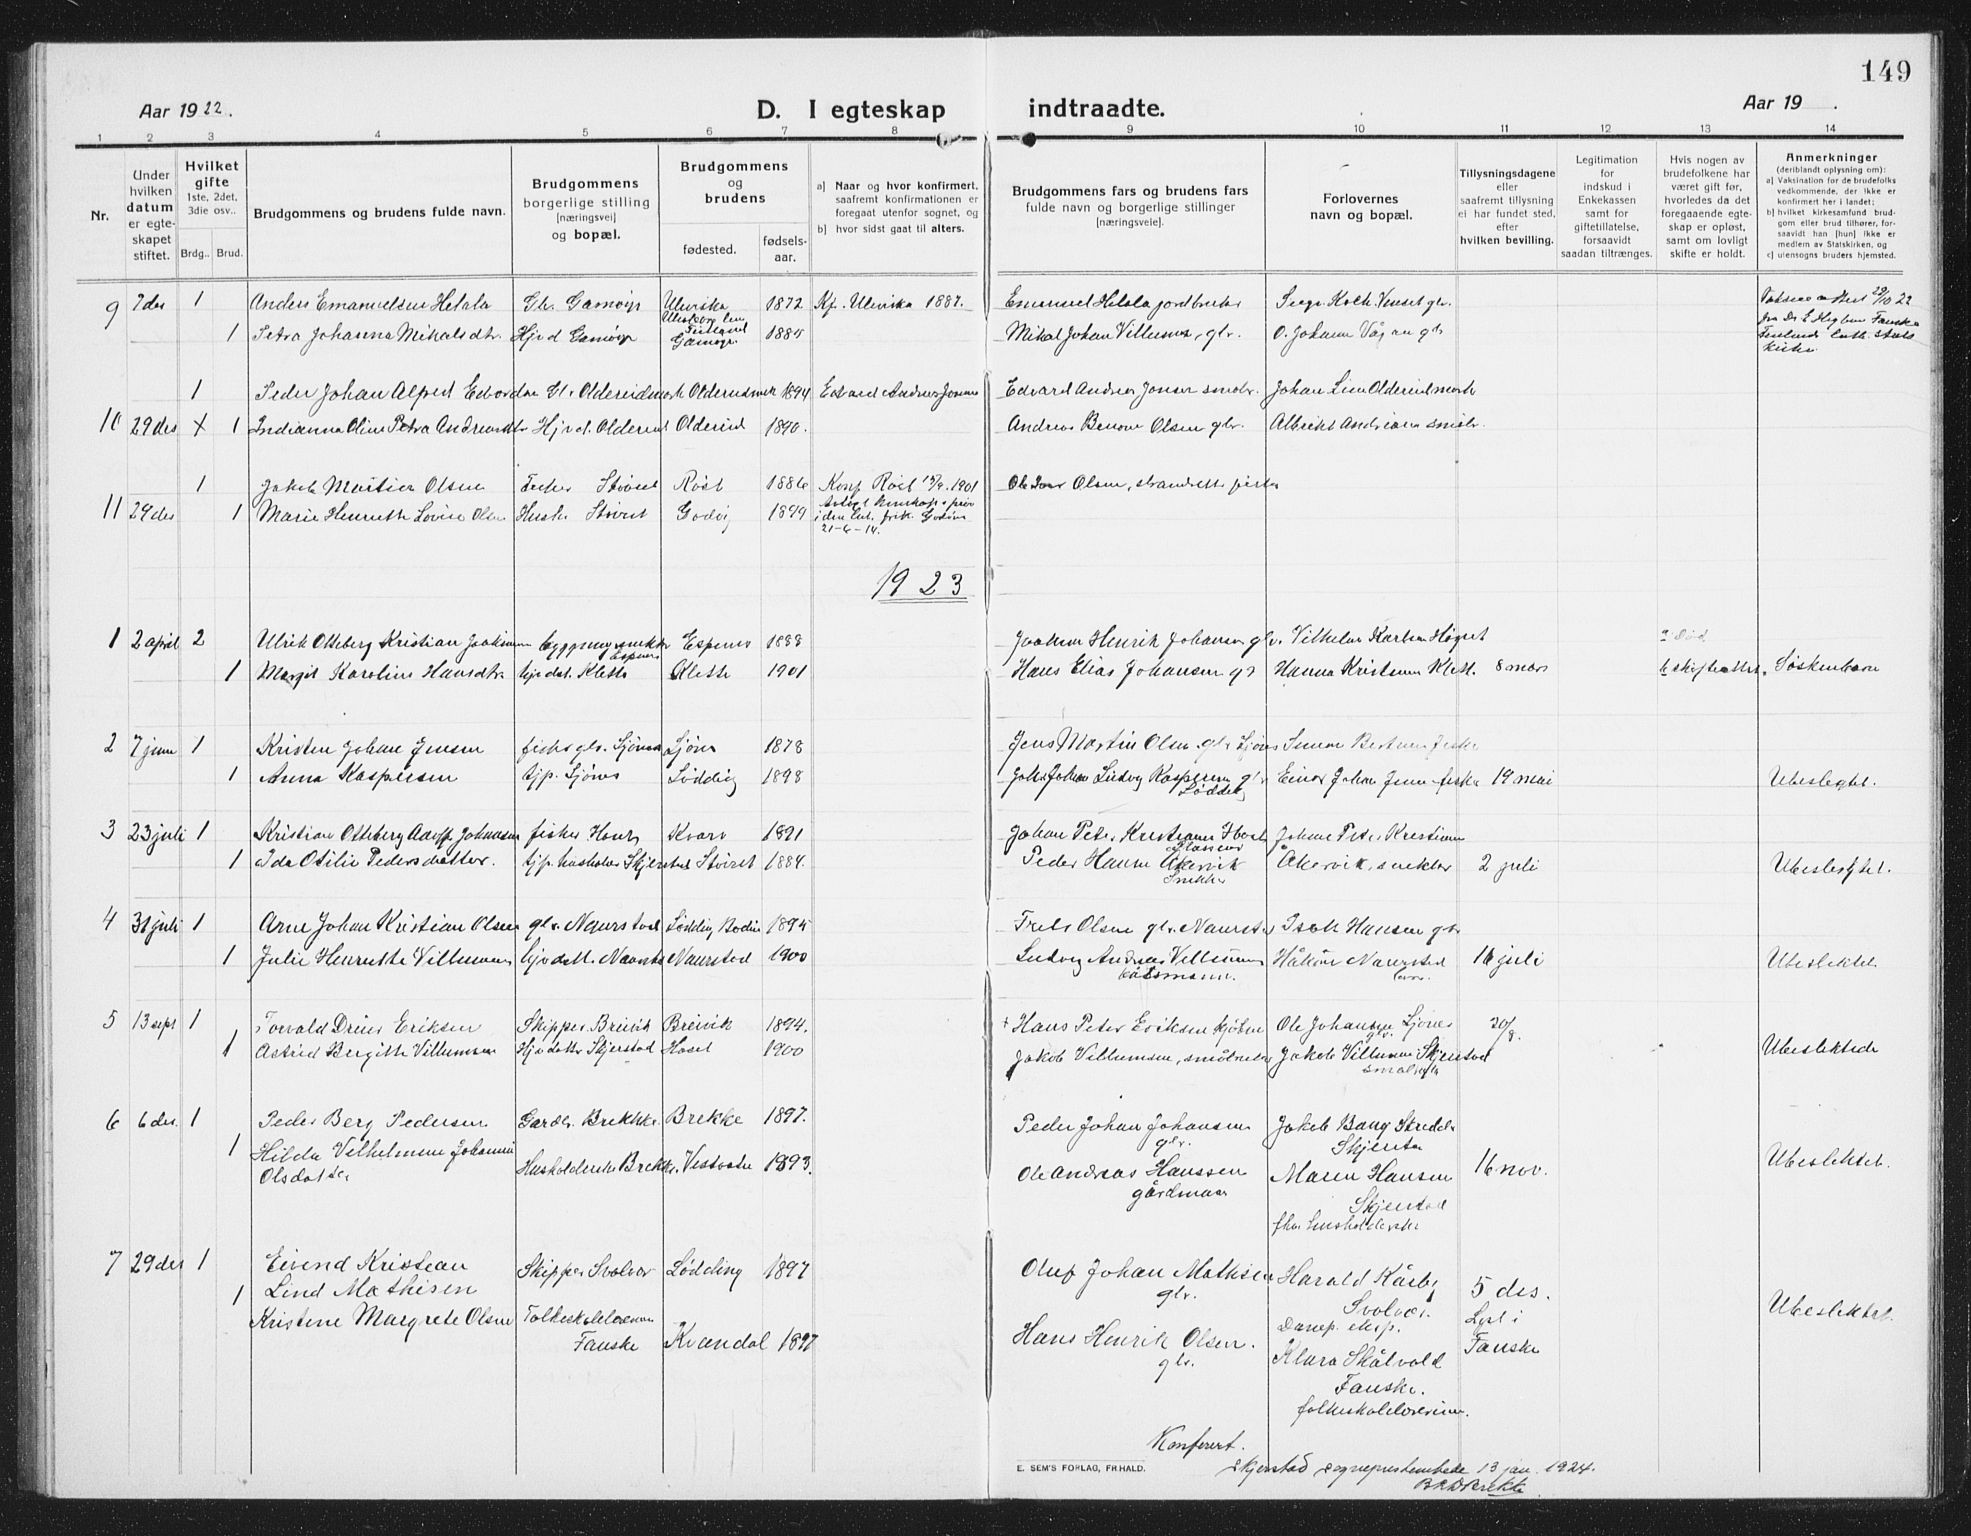 149
Aar 1922.
D. I egteskap indtraadte.
Aar 19 .
1 2 3 4 5 6 7 8 9 10 11 12 13 14
Nr.
Under hvilken datum er egteskapet stiftet.
Hvilket gifte 1ste, 2det, 3die osv..
Brdg.. Brud.
Brudgommens og brudens fulde navn.
Brudgommens borgerlige stilling [næringsvei] og bopæl.
Brudgommens og brudens
fødested.
fødselsaar.
a] Naar og hvor konfirmert, saafremt konfirmationen er foregaat utenfor sognet, og
b] hvor sidst gaat til alters.
Brudgommens fars og brudens fars fulde navn og borgerlige stillinger [næringsveie].
Forlovernes navn og bopæl.
Tillysningsdagene eller saafremt tillysning ei har fundet sted, efter hvilken bevilling.
Legitimation for indskud i Enkekassen samt for giftetillatelse, forsaavidt saadan tiltrænges.
Hvis nogen av brudefolkene har været gift før, hvorledes da det foregaaende egteskap er opløst, samt om lovligt skifte er holdt.
Anmerkninger
(deriblandt oplysning om):
a] Vaksination for de brudefolks vedkommende, der ikke er konfirmert her i landet;
b] hvilket kirkesamfund brudgom eller brud tilhører, forsaavidt han [hun] ikke er medlem av Statskirken, og
c] utensogns bruders hjemsted.
9 7 des 1 Anders Emanuelsen Hetala Gb. Gamøyr 1872 Kf. Ulevika 1887. Emanuel Hetala jordbruker
1 Petra Johanna Mikalsdtr. Hjv d Gamøyr Gamøyr 1885 Mikal Johan Villumsen, glr. O. Johansen Vågan glr
1 Peder Johan Alfred Edvardsen Gl. Oldereidmork Oldereidmork 1894 Edvard Andreas Jensen Edvard Andreas Jensen smbr. Johan Lind Oldereidmork
10 29 des + 1 Indianna Oline Petra Andreasdtr Hjvd. Oldereid Oldereid 1890. Andreas Olsen glr. Albrikt Andreasen småbr.
1 Jakob Martin Olsen Fisker Støvset Røst 1886 Konf Røst 1901 Ole Olsen, strandsitter fisker
11 29 des 1 Marie Henrette Lovise Olsen Hush. Støvset Godøy 1899
21-6-14.
1923
1 2 april 2 Ulrik Otteberg Kristian Joakimsen byggningssnekker Espenes Espenes 1888 Joakim Henrik Johansen glr. Vilhelm Karlsen Høgset død
1 Margit Karoline Hansdtr hjv dat. Klette Klette 1901 Hans Elias Johansen gr Hanna Kristensen Klett. 8 mars Søskenbarn
2 7 juni 1 Kristen Johan Jensen fisker glr. Ljønes Ljønes 1878 Jens Martin Olsen glr Ljønes
1 Anna Kaspersen tjp. Ljønes Løddig 1898 Johan Ludvig Kaspersen glr Løddig Einar Johan Jensen fisker 19 mai Ubeslegtet.
3 23 juli 1 Kristian Otteberg Adolf Johansen fisker Kvarv 1891 Johan Peter Kristiansen Johan Peter Kristiansen
1 Ida Otilie Pedersdatter. tjp. husholder Skjerstad Støvset 1884. Peder Hansen Åkervik Snekker Åkervik, snekker 2 juli Ubeslegtet.
4 31 juli 1 Arne Johan Kristian Olsen glr. Naurstad Løddig Bodin 1895 Frets Olsen glr. Naurstad Isak Hansen gbr
1 Julie Henrette Villumsen hjv datt. Naurstad Naurstad 1900 Ludvig Andreas Villumsen båtsmann. Håkon Naurstad 16 juli Ubeslektet.
5 13 sept 1 Torvald Drius Eriksen Skipper Breivik Breivik 1894. + Hans Peter Eriksen kjøbm Ole Johansen Ljønes glr. 20/8.
1 Astrid Bergitte Villumsen Hjv datter Skjerstad Hoset 1900 Jakob Villumsen, småbruker Jakob Villumsen Skjerstad Ubeslektede
6 6 des. 1 Peder Berg Pedersen Gardbr. Brekke. Brekke 1897. Peder Johan Johansen glr. Jakob Bang Skredder Skjerstad
1 Hilda Vilhelmine Johanna Olsdatter Husholderske Brekke. Vestvatn 1893. Ole Andreas Hanssen gårdmann Maren Hansen Skjerstad fhv husholderske 16 nov. Ubeslektet.
7 29 des 1 Eivind Kristian Lind Mathisen Skipper Svolvær Lødding 1897 Oluf Johan Mathisen glr. Harald Kårby Svolvær. Dampsk. eksp. 5 des. Lyst i Fauske
1 Kristine Margrete Olsen Folkeskolelærerinne Fauske Kvandal 1897 Hans Henrik Olsen. glr. Klara Skålvold Fauske. folkeskolelærerinne. Ubeslektet.
Konferert.
E. SEM'S FORLAG, FR.HALD.
Skjerstad sogneprestembede 13 jan. 1924.